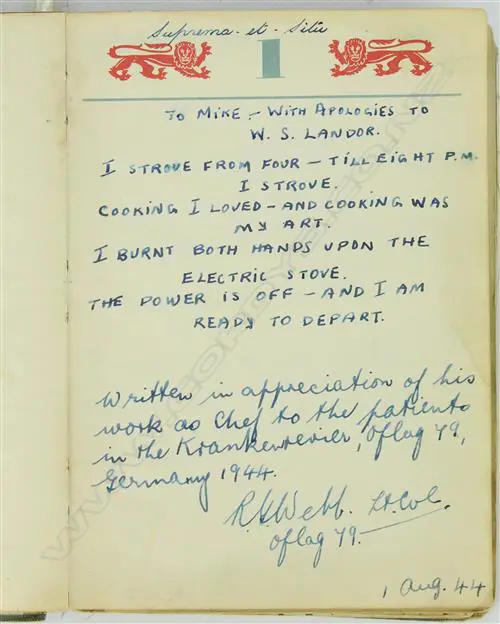 Suprema - et - Situ
1
TO MIKE - WITH APOLOGIES TO
W. S. LANDOR.
I STROVE FROM FOUR - TILL EIGHT P.M.
I STROVE.
COOKING I LOVED - AND COOKING WAS
MY ART.
I BURNT BOTH HANDS UPON THE
ELECTRIC STOVE.
THE POWER IS OFF - AND I AM
READY TO DEPART.
Written in appreciation of his
work as Chef to the patients
in the Krankenrevier, Oflag 79,
Germany 1944.
Webb. Lt. Col.
Oflag 79.
1 Aug. 44